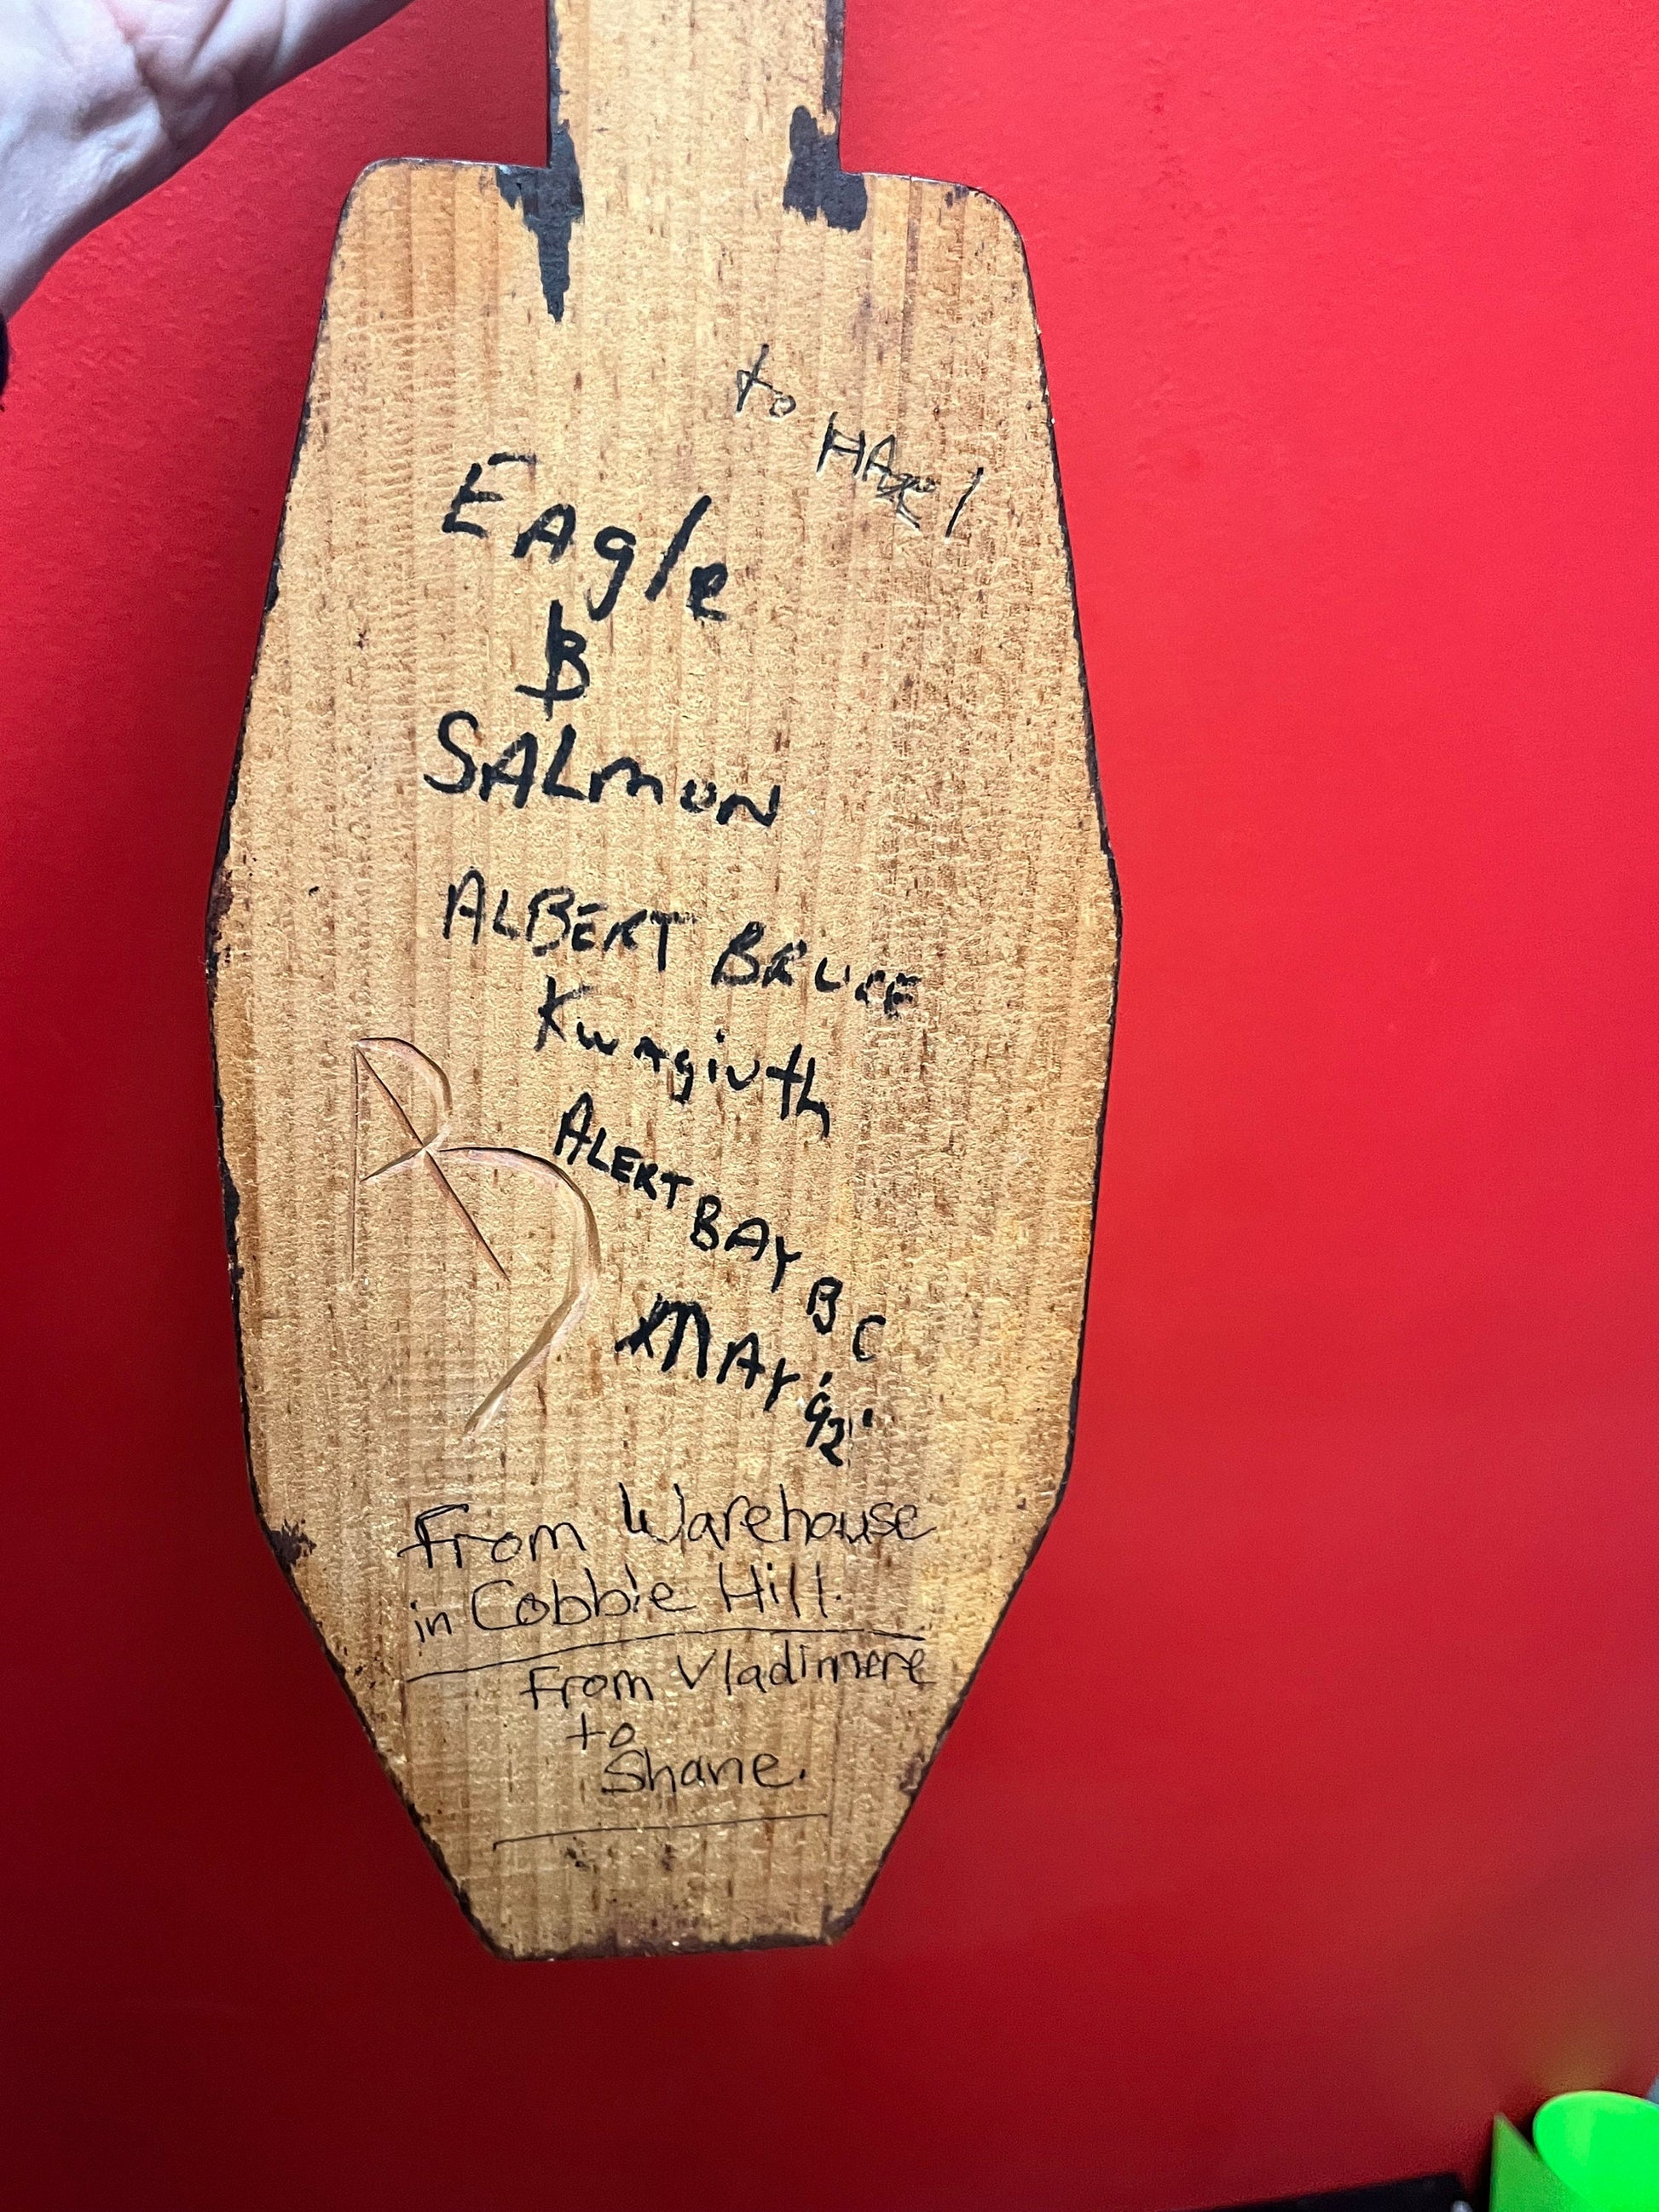 to HAzel
EAgle
&
SALMON
ALBERT BRUCE
Kwagiuth
ALERT BAY BC
MAY '92'
From Warehouse
in Cobble Hill.
From Vladimere
to
Shane.